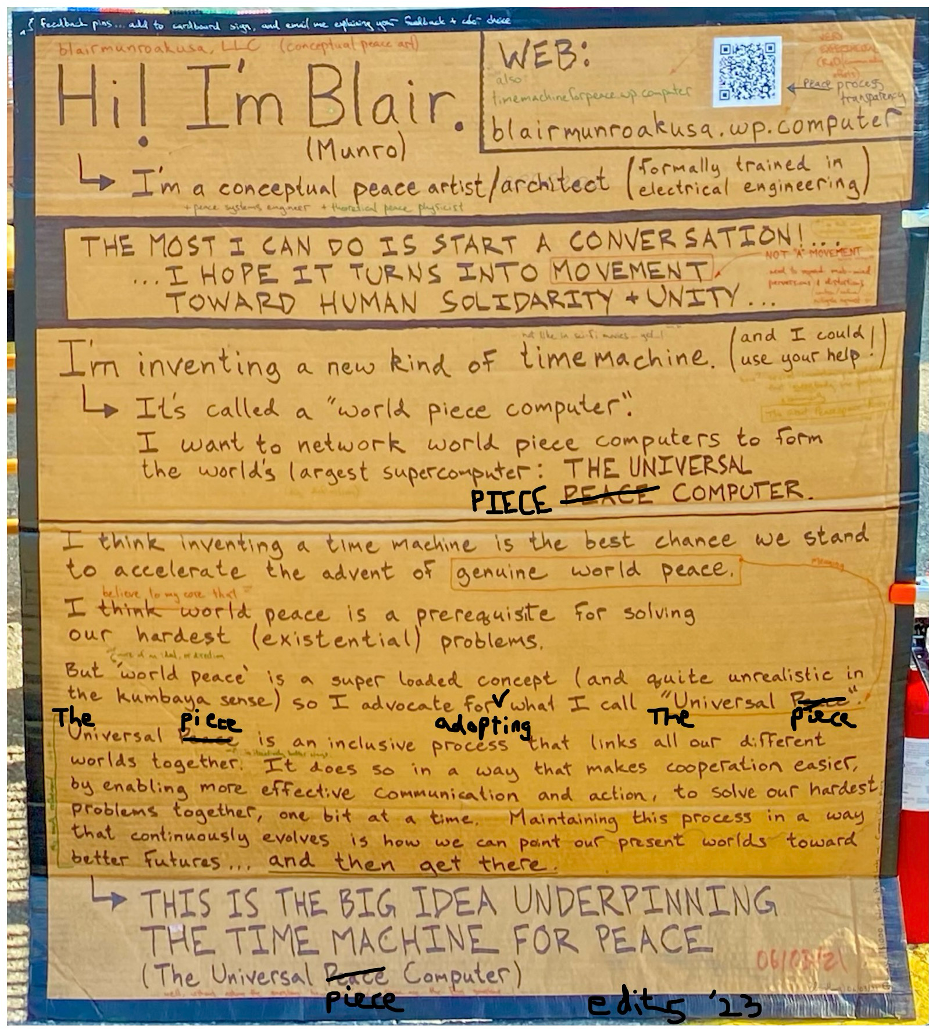 Feedback pins... add to cardboard sign, and email me explaining your feedback + color choice
blairmunroakusa, LLC (conceptual peace art)
Hi! I'm Blair.
(Munro)
WEB:
also
timemachineforpeace.wp.computer
peace process
transparency
blairmunroakusa.wp.computer
I'm a conceptual peace artist/architect (formally trained in
electrical engineering)
+ peace systems engineer + theoretical peace physicist
THE MOST I CAN DO IS START A CONVERSATION!...
...I HOPE IT TURNS INTO MOVEMENT
NOT "A" MOVEMENT
TOWARD HUMAN SOLIDARITY + UNITY...
not like in sci-fi movies
I'm inventing a new kind of time machine. (and I could
use your help!)
It's called a "world piece computer".
I want to network world piece computers to form
the world's largest supercomputer: THE UNIVERSAL
PIECE PEACE COMPUTER.
I think inventing a time machine is the best chance we stand
to accelerate the advent of genuine world peace.
meaning
believe to my core that
I think world peace is a prerequisite for solving
our hardest (existential) problems.
But 'world peace' is a super loaded concept (and quite unrealistic in
the kumbaya sense) so I advocate for what I call "Universal Peace".
The piece adopting The piece
Universal Peace is an inclusive process that links all our different
worlds together. It does so in a way that makes cooperation easier,
by enabling more effective communication and action, to solve our hardest
problems together, one bit at a time. Maintaining this process in a way
that continuously evolves is how we can point our present worlds toward
better futures... and then get there.
THIS IS THE BIG IDEA UNDERPINNING
THE TIME MACHINE FOR PEACE
06/03/21
(The Universal Peace Computer)
piece
edits '23